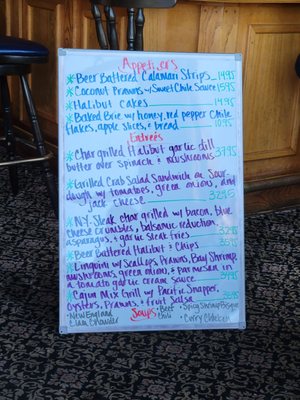 Appetizers
* Beer Battered Calamari Strips 14.95
* Coconut Prawns w/ Sweet Chile Sauce 15.95
* Halibut Cakes 14.95
* Baked Brie w/ honey, red pepper Chile
flakes, apple slices, & bread 10.95
Entrées
* Char grilled Halibut garlic dill
butter over Spinach & mushrooms 37.95
* Grilled Crab Salad Sandwich on Sour
dough w/ tomatoes, green onions, and
jack cheese 32.95
* NY. Steak char grilled w/ bacon, blue
cheese crumbles, balsamic reduction,
asparagus, & garlic steak fries
* Beer Battered Halibut & Chips
* Linguini w/ Scallops, Prawns, Bay Shrimp
mushrooms, green onion, & parmesan in
a tomato garlic cream sauce
* Cajun Mix Grill w/ Pacific Snapper,
Oysters, Prawns, & fruit Salsa
Soups
• Beef
Chili
• Spicy Shrimp Bisque
• New England
Clam Chowder
• Curry Chicken